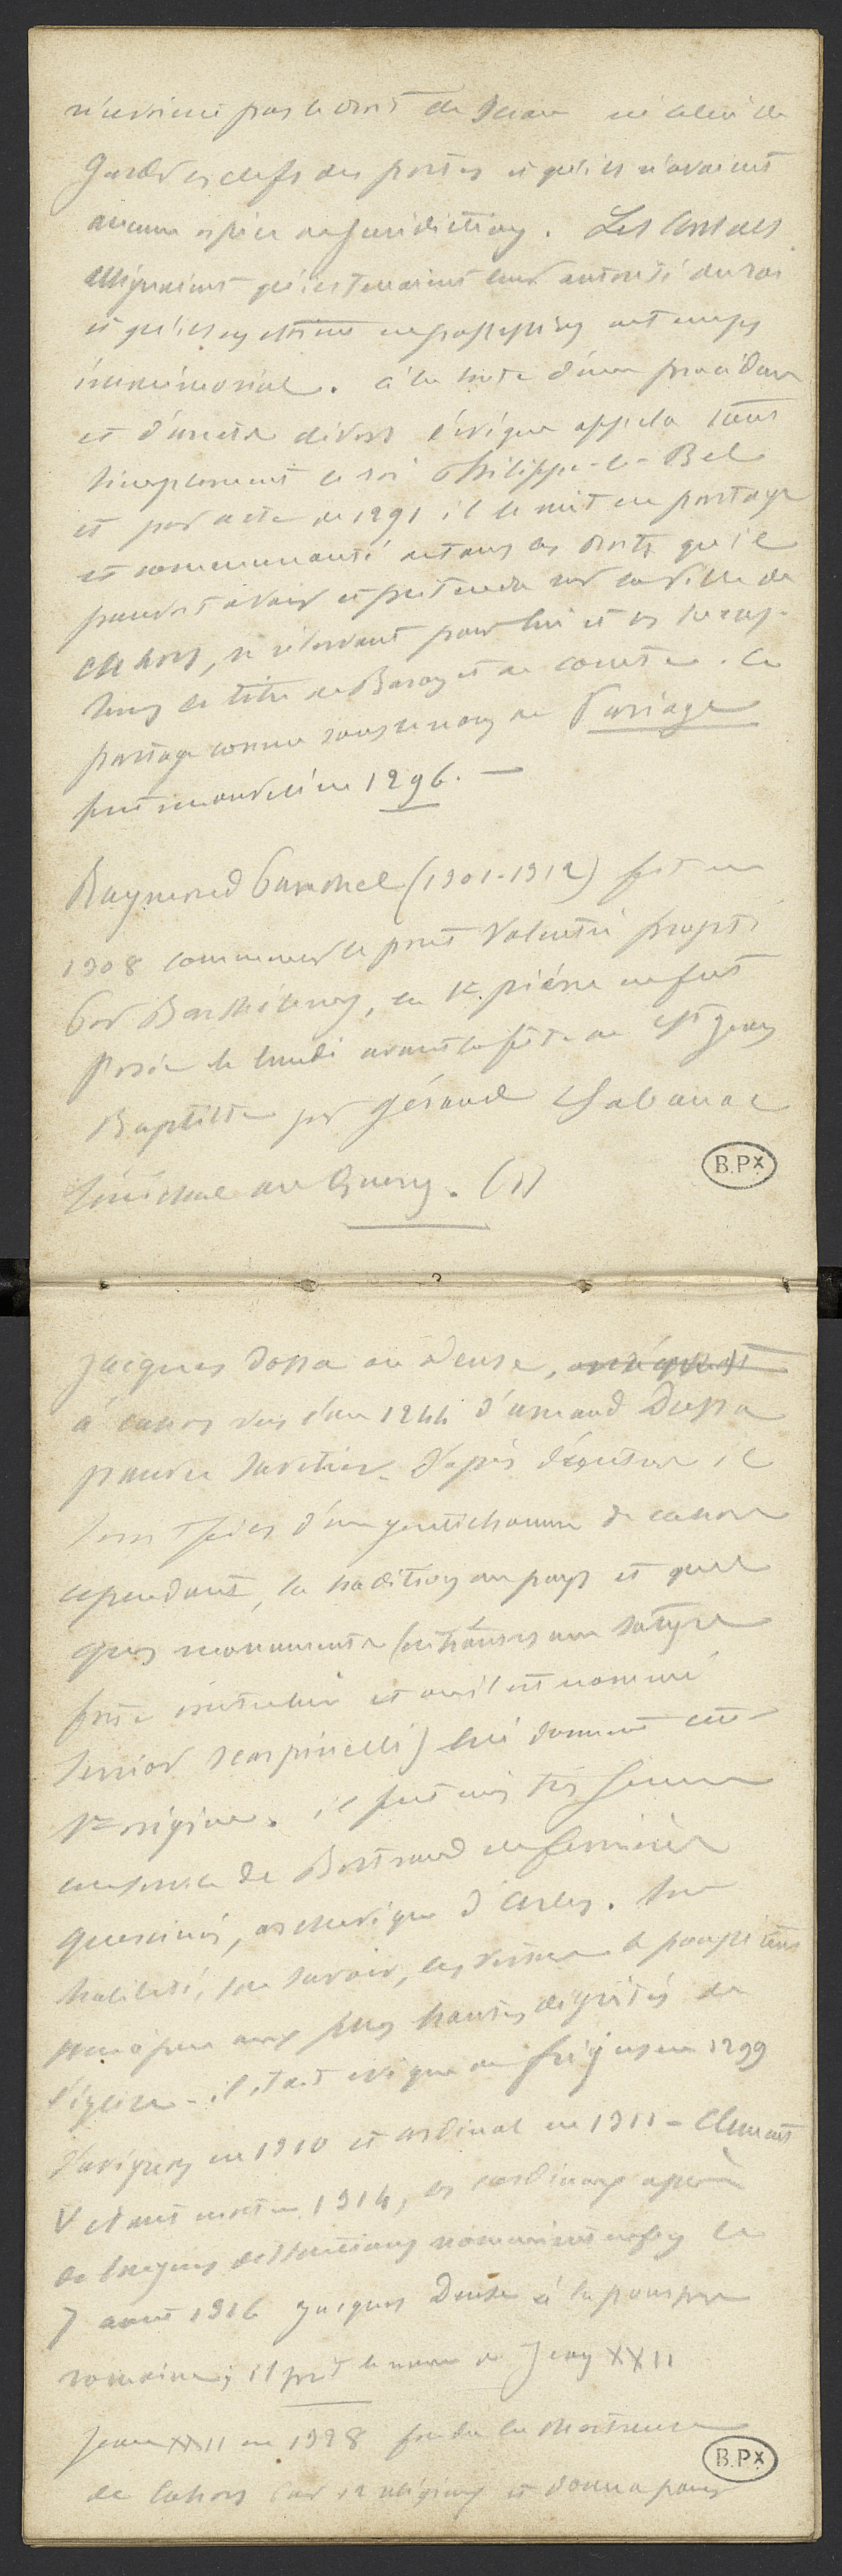 n'avaient pas le droit de Sceau ni celui de
garder les clefs des portes et qu'ils n'avaient
aucune espèce de juridiction. Les Consuls
alléguaient qu'ils tenaient leur autorité du roi
et qu'ils en étaient en possession de temps
immémorial. à la suite d'une procédure
et d'arrêts divers l'évêque appela tout
simplement le roi Philippe-le-Bel
et par acte de 1291 il le mit en partage
et communauté de tous les droits qu'il
pouvait avoir et prétendre sur la ville de
Cahors, se réservant pour lui et ses succes-
seurs le titre de Baron et de comte. Ce
partage connu sous le nom de Pariage
fut renouvelé en 1296. —
Raymond Panchel (1301-1312) fit en
1308 commencer le pont Valentré projeté
par Barthélemy, la 1re pierre en fut
posée le lundi avant la fête de St Jean
Baptiste par Géraud Sabanac
sénéchal du Quercy. (1)
B.PX
Jacques Dossa ou Deuse,
à Cahors vers l'an 1244 d'Arnaud Dupsa
pauvre savetier. D'après il
serait fils d'un gentilhomme de Cahors
cependant, la tradition du pays et quel
ques monuments (entr'autres une satyre
où il est nommé
) lui donnent cette
1re origine. il fut mis très jeune
au service de Bertrand de
quercinois, archevêque d'Arles. Son
habileté, son savoir, ses vertus le poussèrent
peu à peu aux plus hautes dignités de
l'église - il était évêque de Fréjus en 1299
d'Avignon en 1310 et cardinal en 1311 - Clément
V étant mort en 1314, les cardinaux après
de longues dissentions nommèrent enfin le
7 août 1316 Jacques Deuse à la pourpre
romaine; il prit le nom de Jean XXII
Jean XXII en 1328 fonda la Chartreuse
de Cahors pour 12 religieux et donna pour
B.PX